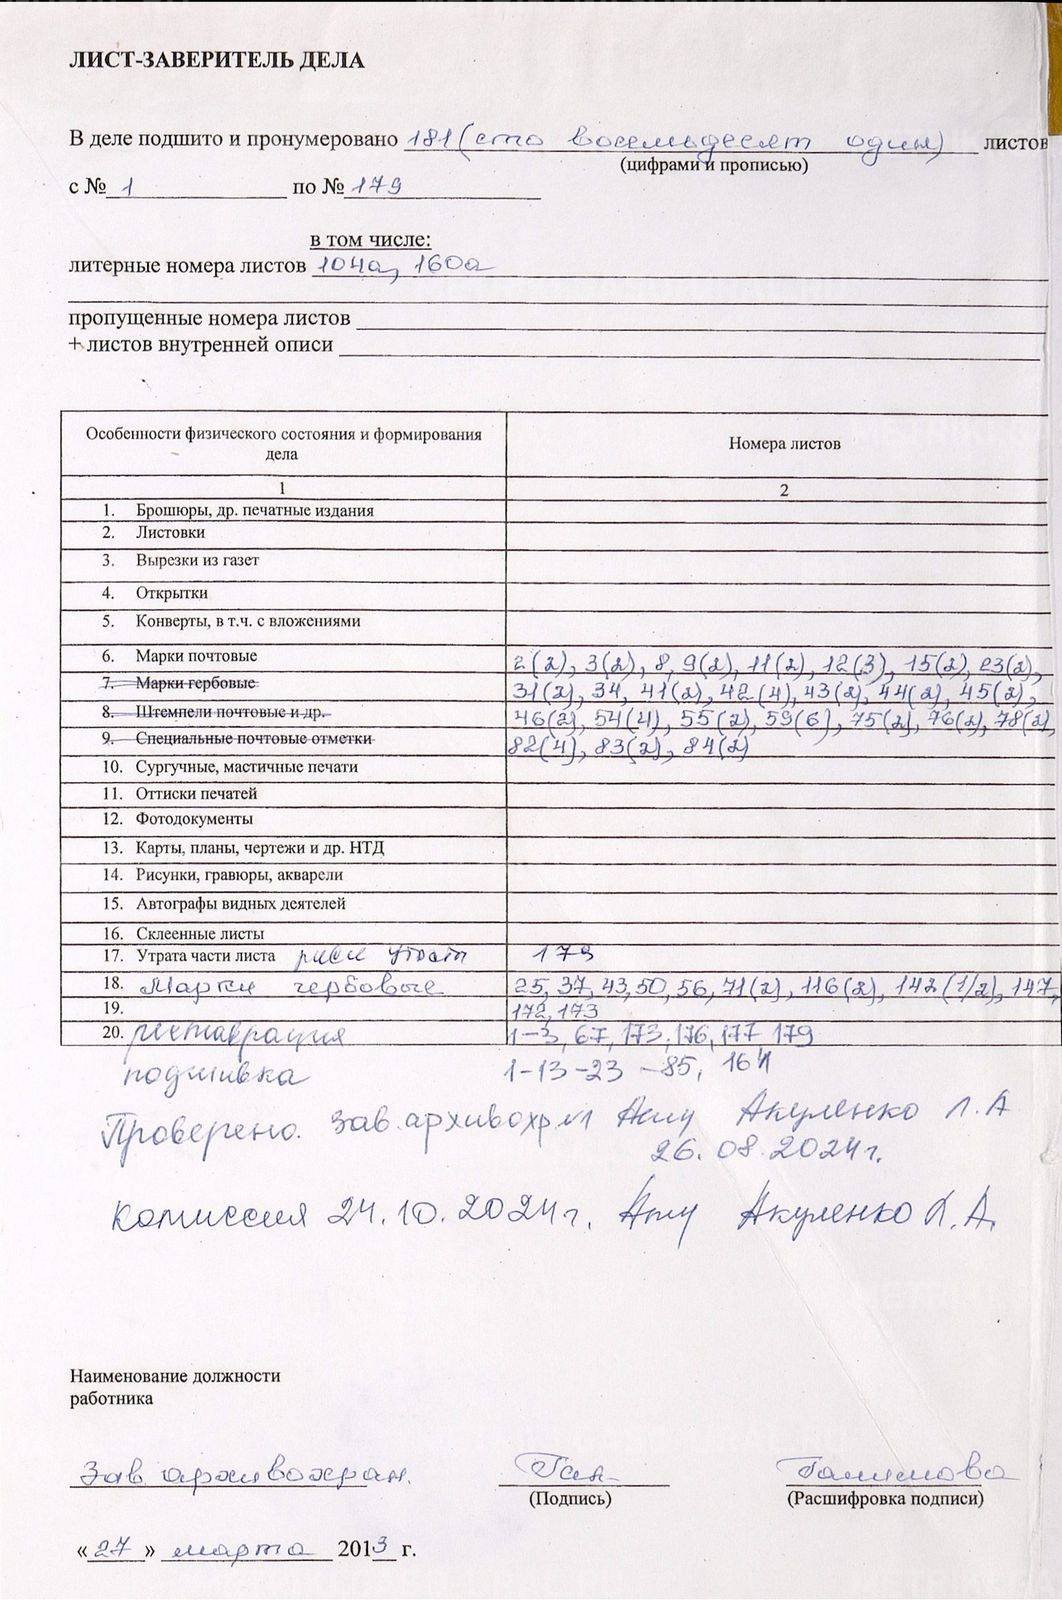 ЛИСТ-ЗАВЕРИТЕЛЬ ДЕЛА
В деле подшито и пронумеровано 181 (сто восемьдесят один) листов
(цифрами и прописью)
с № 1 по № 179
в том числе:
литерные номера листов 104а, 160а
пропущенные номера листов
+ листов внутренней описи
Особенности физического состояния и формирования дела Номера листов
1 2
1. Брошюры, др. печатные издания
2. Листовки
3. Вырезки из газет
4. Открытки
5. Конверты, в т.ч. с вложениями
6. Марки почтовые 2(2), 3(2), 8, 9(2), 11(2), 12(3), 15(2), 23(2),
7. Марки гербовые 31(2), 34, 41(2), 42(4), 43(2), 44(2), 45(2),
8. Штемпели почтовые и др. 46(2), 54(4), 55(2), 59(6), 75(2), 76(2), 78(2),
9. Специальные почтовые отметки 82(4), 83(2), 84(2)
10. Сургучные, мастичные печати
11. Оттиски печатей
12. Фотодокументы
13. Карты, планы, чертежи и др. НТД
14. Рисунки, гравюры, акварели
15. Автографы видных деятелей
16. Склеенные листы
17. Утрата части листа риск утраты 179
18. Марки гербовые 25, 37, 43, 50, 56, 71(2), 116(2), 142(1/2), 147,
19. 172, 173
20. реставрация 1-3, 67, 173, 176, 177, 179
подшивка 1-13-23-85, 164
Проверено. Зав. архивохр Акуленко Л.А
26.08.2024г.
Комиссия 24.10.2024г. Акуленко Л.А.
Наименование должности
работника
Зав. архивохран. Гал Галимова
(Подпись) (Расшифровка подписи)
«27» марта 2013 г.